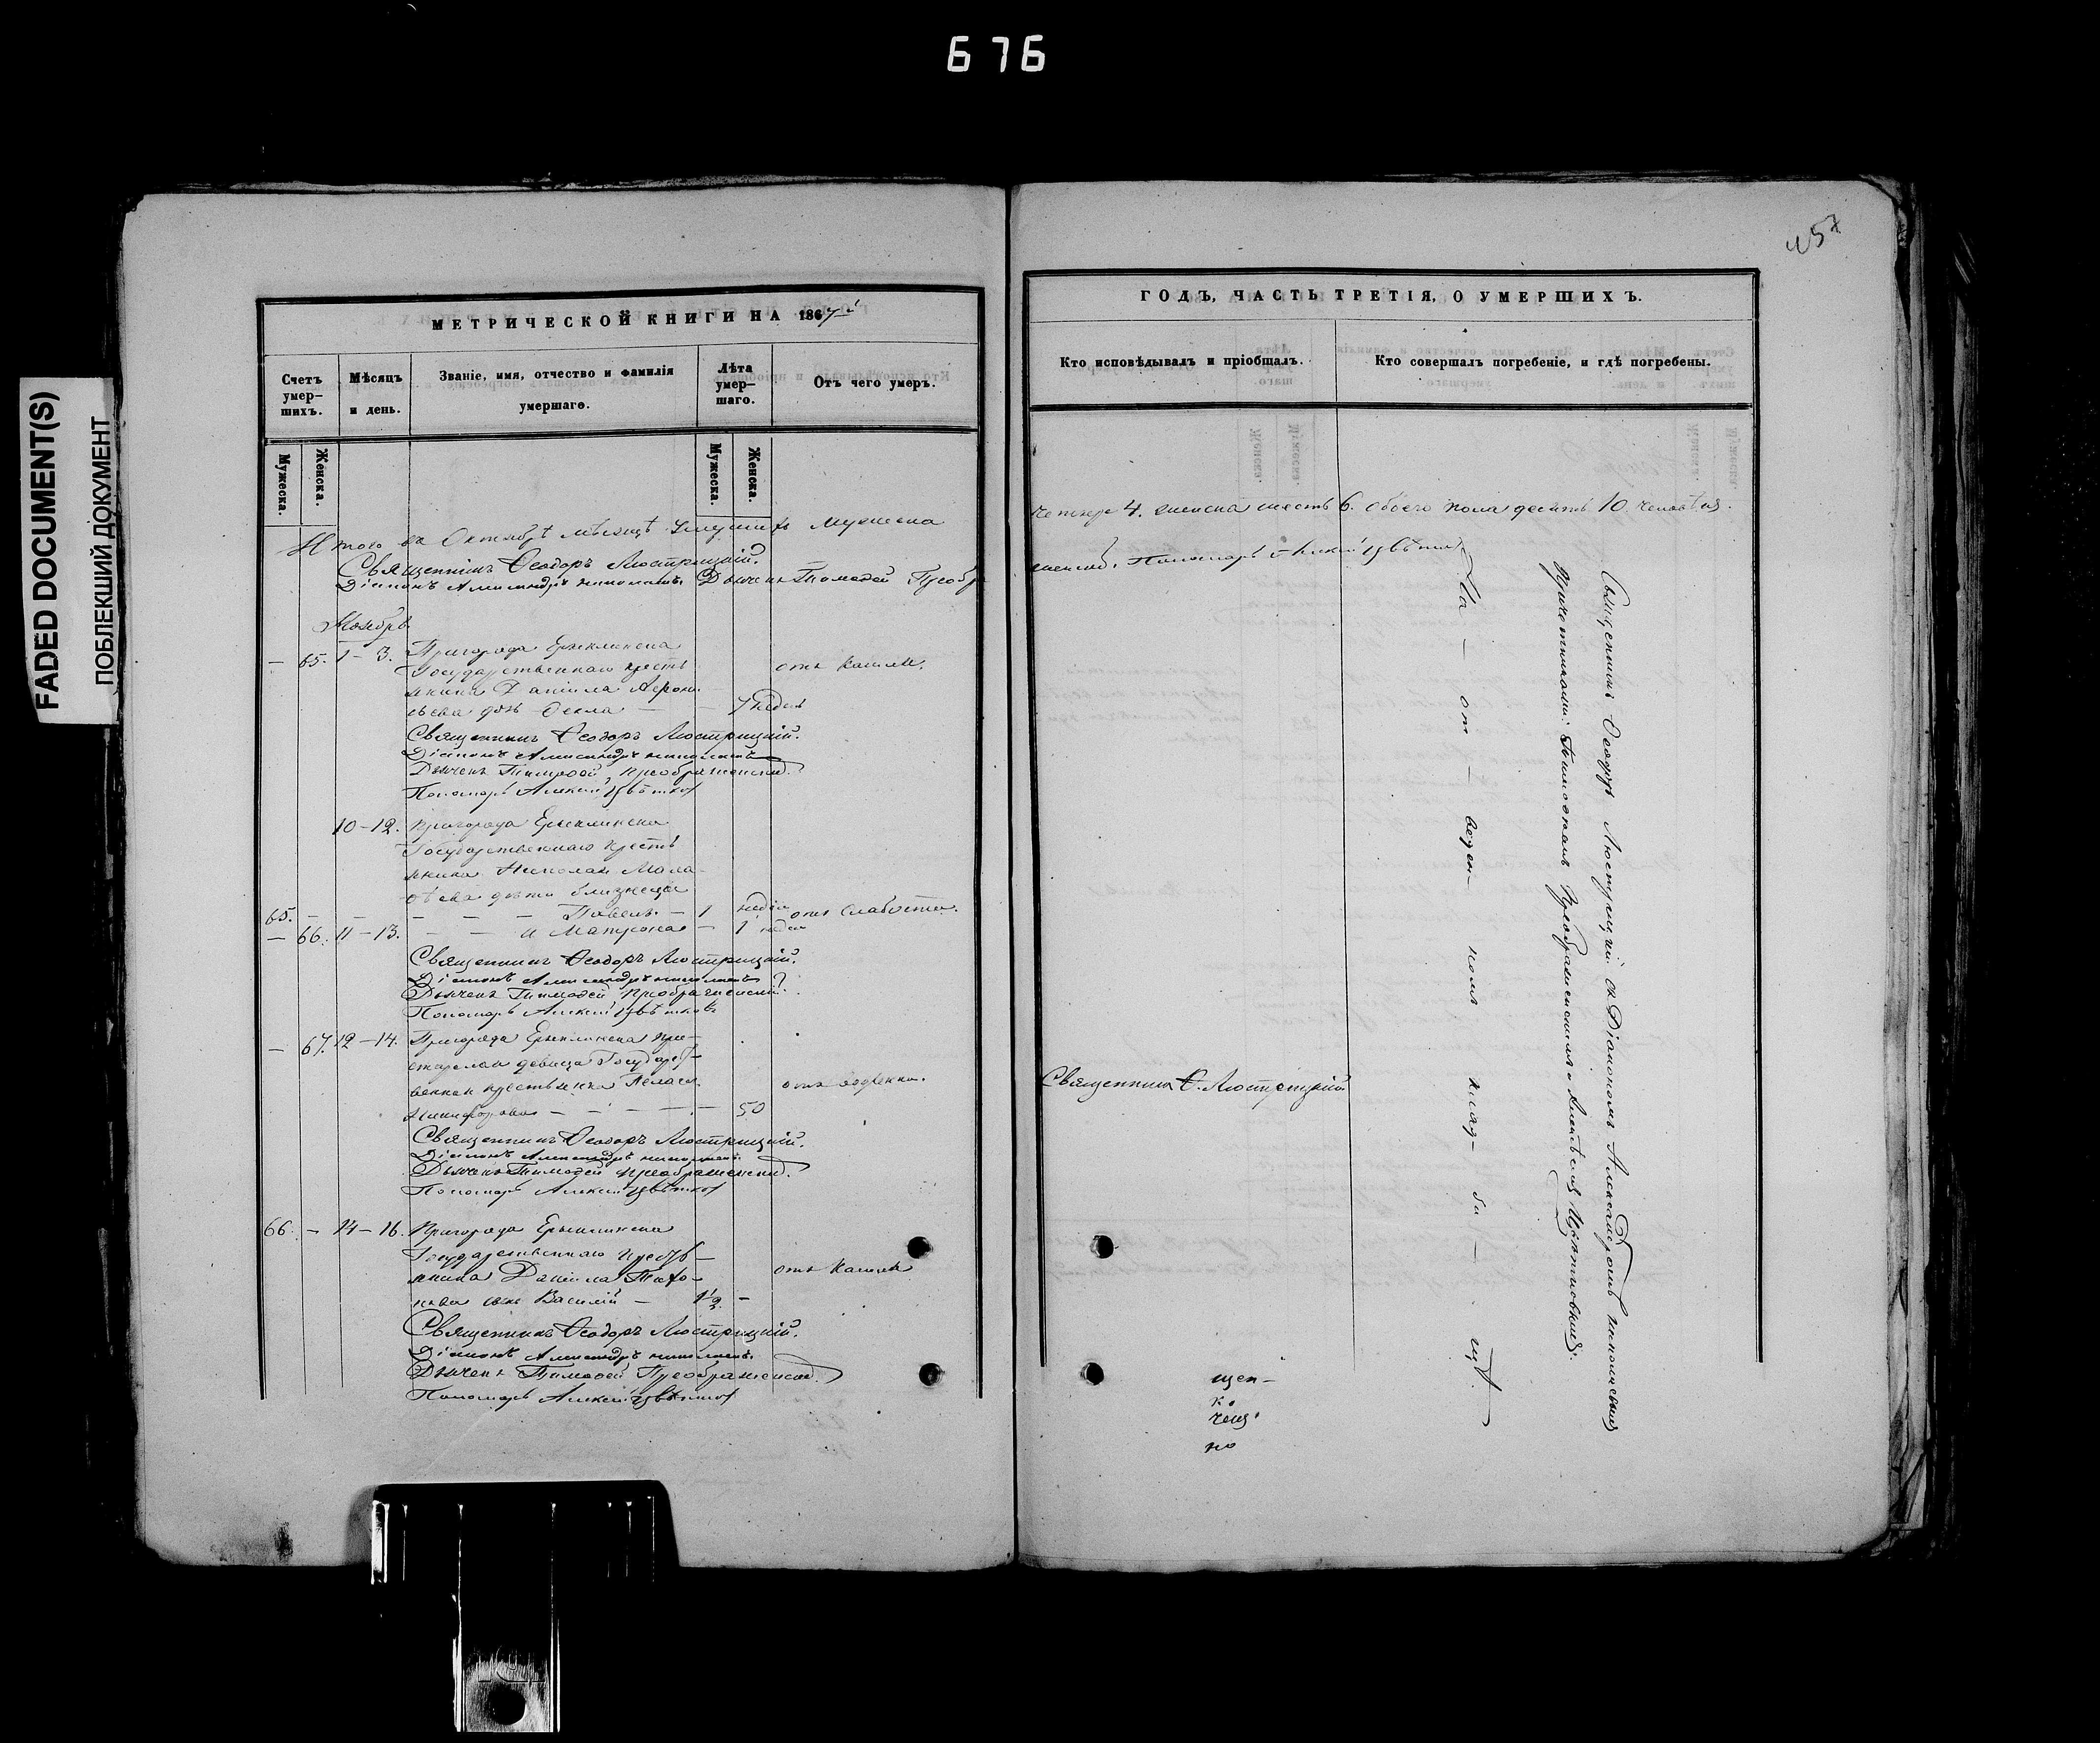 676
FADED DOCUMENT(S)
ПОБЛЕКШИЙ ДОКУМЕНТ
МЕТРИЧЕСКОЙ КНИГИ НА 1867й
Счетъ умер-шихъ.
Мѣсяцъ и день.
Званіе, имя, отчество и фамилія умершаго.
Лѣта умер-шаго.
Отъ чего умеръ.
Мужеска.
Женска.
Мужеска.
Женска.
Итого въ Октябрѣ мѣсяцѣ умершихъ мужеска
Священникъ Ѳеодоръ Люстрицкій.
Діаконъ Александръ Дьячекъ Тимоѳей Преобра
Ноябрь
— 65. 1 — 3. Пригорода Ерыклинска
Государственнаго кресть
янина Даніила
дочь Ѳекла — — 7 недѣль
отъ кашля.
Священникъ Ѳеодоръ Люстрицкій.
Діаконъ Александръ
Дьячекъ Тимоѳей Преображенскій.
Пономарь Алексій Цвѣтков
10 — 12. Пригорода Ерыклинска
Государственнаго кресть
янина Николая
дѣти близнецы
65. — — — — Павелъ — 1 недѣли отъ слабости.
— 66. 11 — 13. — — и Матрона — 1 недѣли
Священникъ Ѳеодоръ Люстрицкій.
Діаконъ Александръ
Дьячекъ Тимоѳей Преображенскій.
Пономарь Алексій Цвѣтковъ
— 67. 12 — 14. Пригорода Ерыклинска пре-
старелая девица Государст-
венная крестьянка Пелагея
Никифорова — — — — 50
отъ водянки.
Священникъ Ѳеодоръ Люстрицкій.
Діаконъ Александръ
Дьячекъ Тимоѳей Преображенскій.
Пономарь Алексій Цвѣтков
66. — 14 — 16. Пригорода Ерыклинска
Государственнаго кресть-
янина Даніила Тихо-
нова сынъ Василій — 1½ —
отъ кашля
Священникъ Ѳеодоръ Люстрицкій.
Діаконъ Александръ
Дьячекъ Тимоѳей Преображенскій.
Пономарь Алексій Цвѣтков
457
ГОДЪ, ЧАСТЬ ТРЕТІЯ, О УМЕРШИХЪ.
Кто исповѣдывалъ и пріобщалъ.
Кто совершалъ погребеніе, и гдѣ погребены.
четыре 4. женска шесть 6. обоего пола десять 10. человѣкъ.
женскій. Пономарь Алексій Цвѣтков
Священникъ Ѳ. Люстрицкій
Священникъ Ѳеодоръ Люстрицкій съ Діакономъ Александромъ
причетниками: Тимоѳеемъ Преображенскимъ и Алексѣемъ Цвѣтковымъ.
На — от — веден- номъ клад- би — щѣ.
щен-
ко
чещ
но